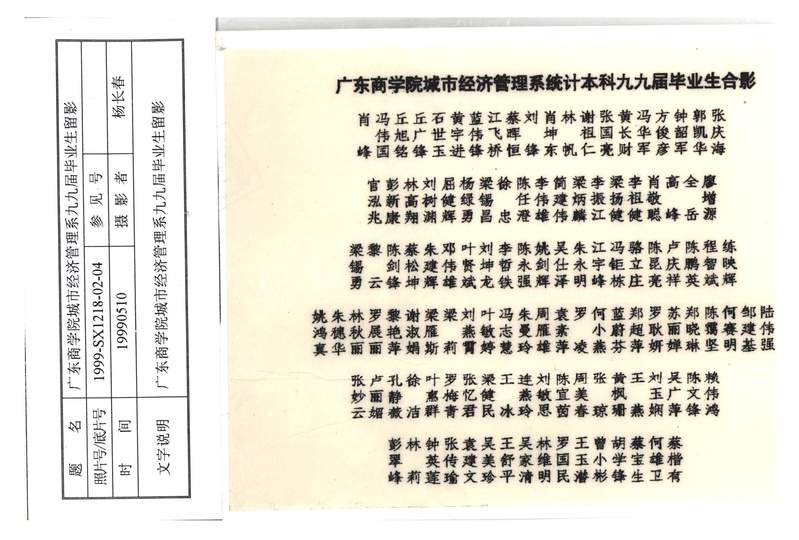 题 名
广东商学院城市经济管理系九九届毕业生留影
照片号/底片号
1999-SX1218-02-04
参 见 号
时 间
19990510
摄 影 者
杨长春
文字说明
广东商学院城市经济管理系九九届毕业生留影
广东商学院城市经济管理系统计本科九九届毕业生合影
肖 冯 丘 丘 石 黄 蓝 江 蔡 刘 肖 林 谢 张 黄 冯 方 钟 郭 张
伟 旭 广 世 宇 伟 飞 晖 坤 祖 国 长 华 俊 韶 凯 庆
峰 国 铭 锋 玉 进 锋 桥 恒 锋 东 帆 仁 亮 财 军 彦 军 华 海
官 彭 林 刘 屈 杨 梁 徐 陈 李 简 梁 李 梁 李 肖 高 全 廖
泓 新 高 树 健 绿 锡 任 伟 建 炳 振 扬 祖 敬 增
兆 康 翔 渊 辉 勇 昌 忠 澄 雄 伟 麟 江 健 健 聪 峰 岳 源
梁 黎 陈 蔡 朱 邓 叶 刘 李 陈 姚 吴 朱 江 冯 骆 陈 卢 陈 程 练
锡 剑 松 建 伟 贤 坤 哲 永 剑 仕 永 宇 钜 立 昆 庆 鹏 智 映
勇 云 锋 坤 辉 雄 斌 龙 铁 强 辉 泽 明 峰 栋 庄 亮 祥 英 斌 辉
姚 朱 林 罗 黎 谢 梁 梁 刘 叶 冯 朱 周 袁 罗 何 蓝 郑 罗 苏 郑 陈 何 邹 陆
鸿 穗 秋 展 艳 淑 雁 燕 敏 志 曼 雁 素 小 蔚 超 耿 丽 晓 霭 赛 建 伟
真 华 丽 丽 萍 娟 斯 莉 霄 婷 慧 玲 雄 萍 凌 燕 芬 萍 妍 婵 琳 坚 明 基 强
张 卢 孔 徐 叶 罗 张 梁 王 连 刘 陈 周 张 黄 王 刘 吴 陈 赖
妙 丽 静 惠 梅 忆 健 燕 敏 宜 美 枫 玉 广 文 伟
云 媚 薇 洁 群 青 君 民 冰 玲 思 茵 春 琼 珊 燕 娴 萍 锋 鸿
彭 林 钟 张 袁 吴 王 吴 林 罗 王 曾 胡 蔡 何 蔡
翠 英 传 建 美 舒 家 维 国 玉 小 学 宝 雄 楷
峰 莉 莲 瑜 文 珍 平 清 明 民 潜 彬 锋 生 卫 有